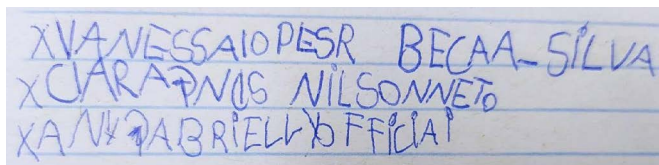 XVANESSAIOPESR BECAA_SILVA
XCIARAPNCIS NILSONNETO
XANYGABRIELLYOFFICIAI